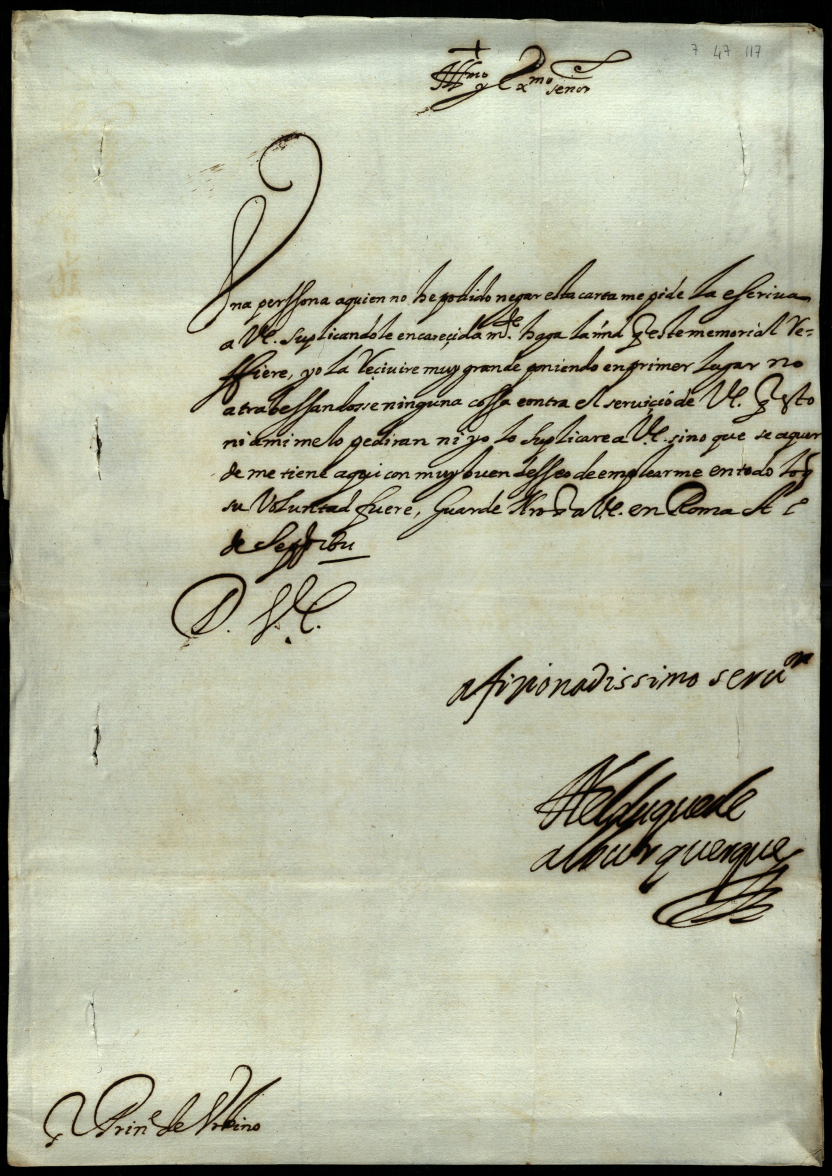 7 47 117
+
Illmo y Exmo señor
Una perssona aquien no he podido negar esta carta me pide la escriva
a V.E. suplicandole encareçidam.te haga la md q este memorial Re-
ffiere, yo la Reçivire muy grande poniendo en primer lugar no
atrabessandosse ninguna cossa contra el serviçio de V.E. q esto
ni ami me lo pediran ni yo lo suplicare a V.E. sino que se acuer
de me tiene aqui con muy buen desseo de emplearme en todo lo q
su Voluntad fuere, Guarde Nro S.r a V.E. en Roma A
de
D. V.E.
afiçionadissimo seruor
el duque de
alburquerque
Prin.e de Urbino